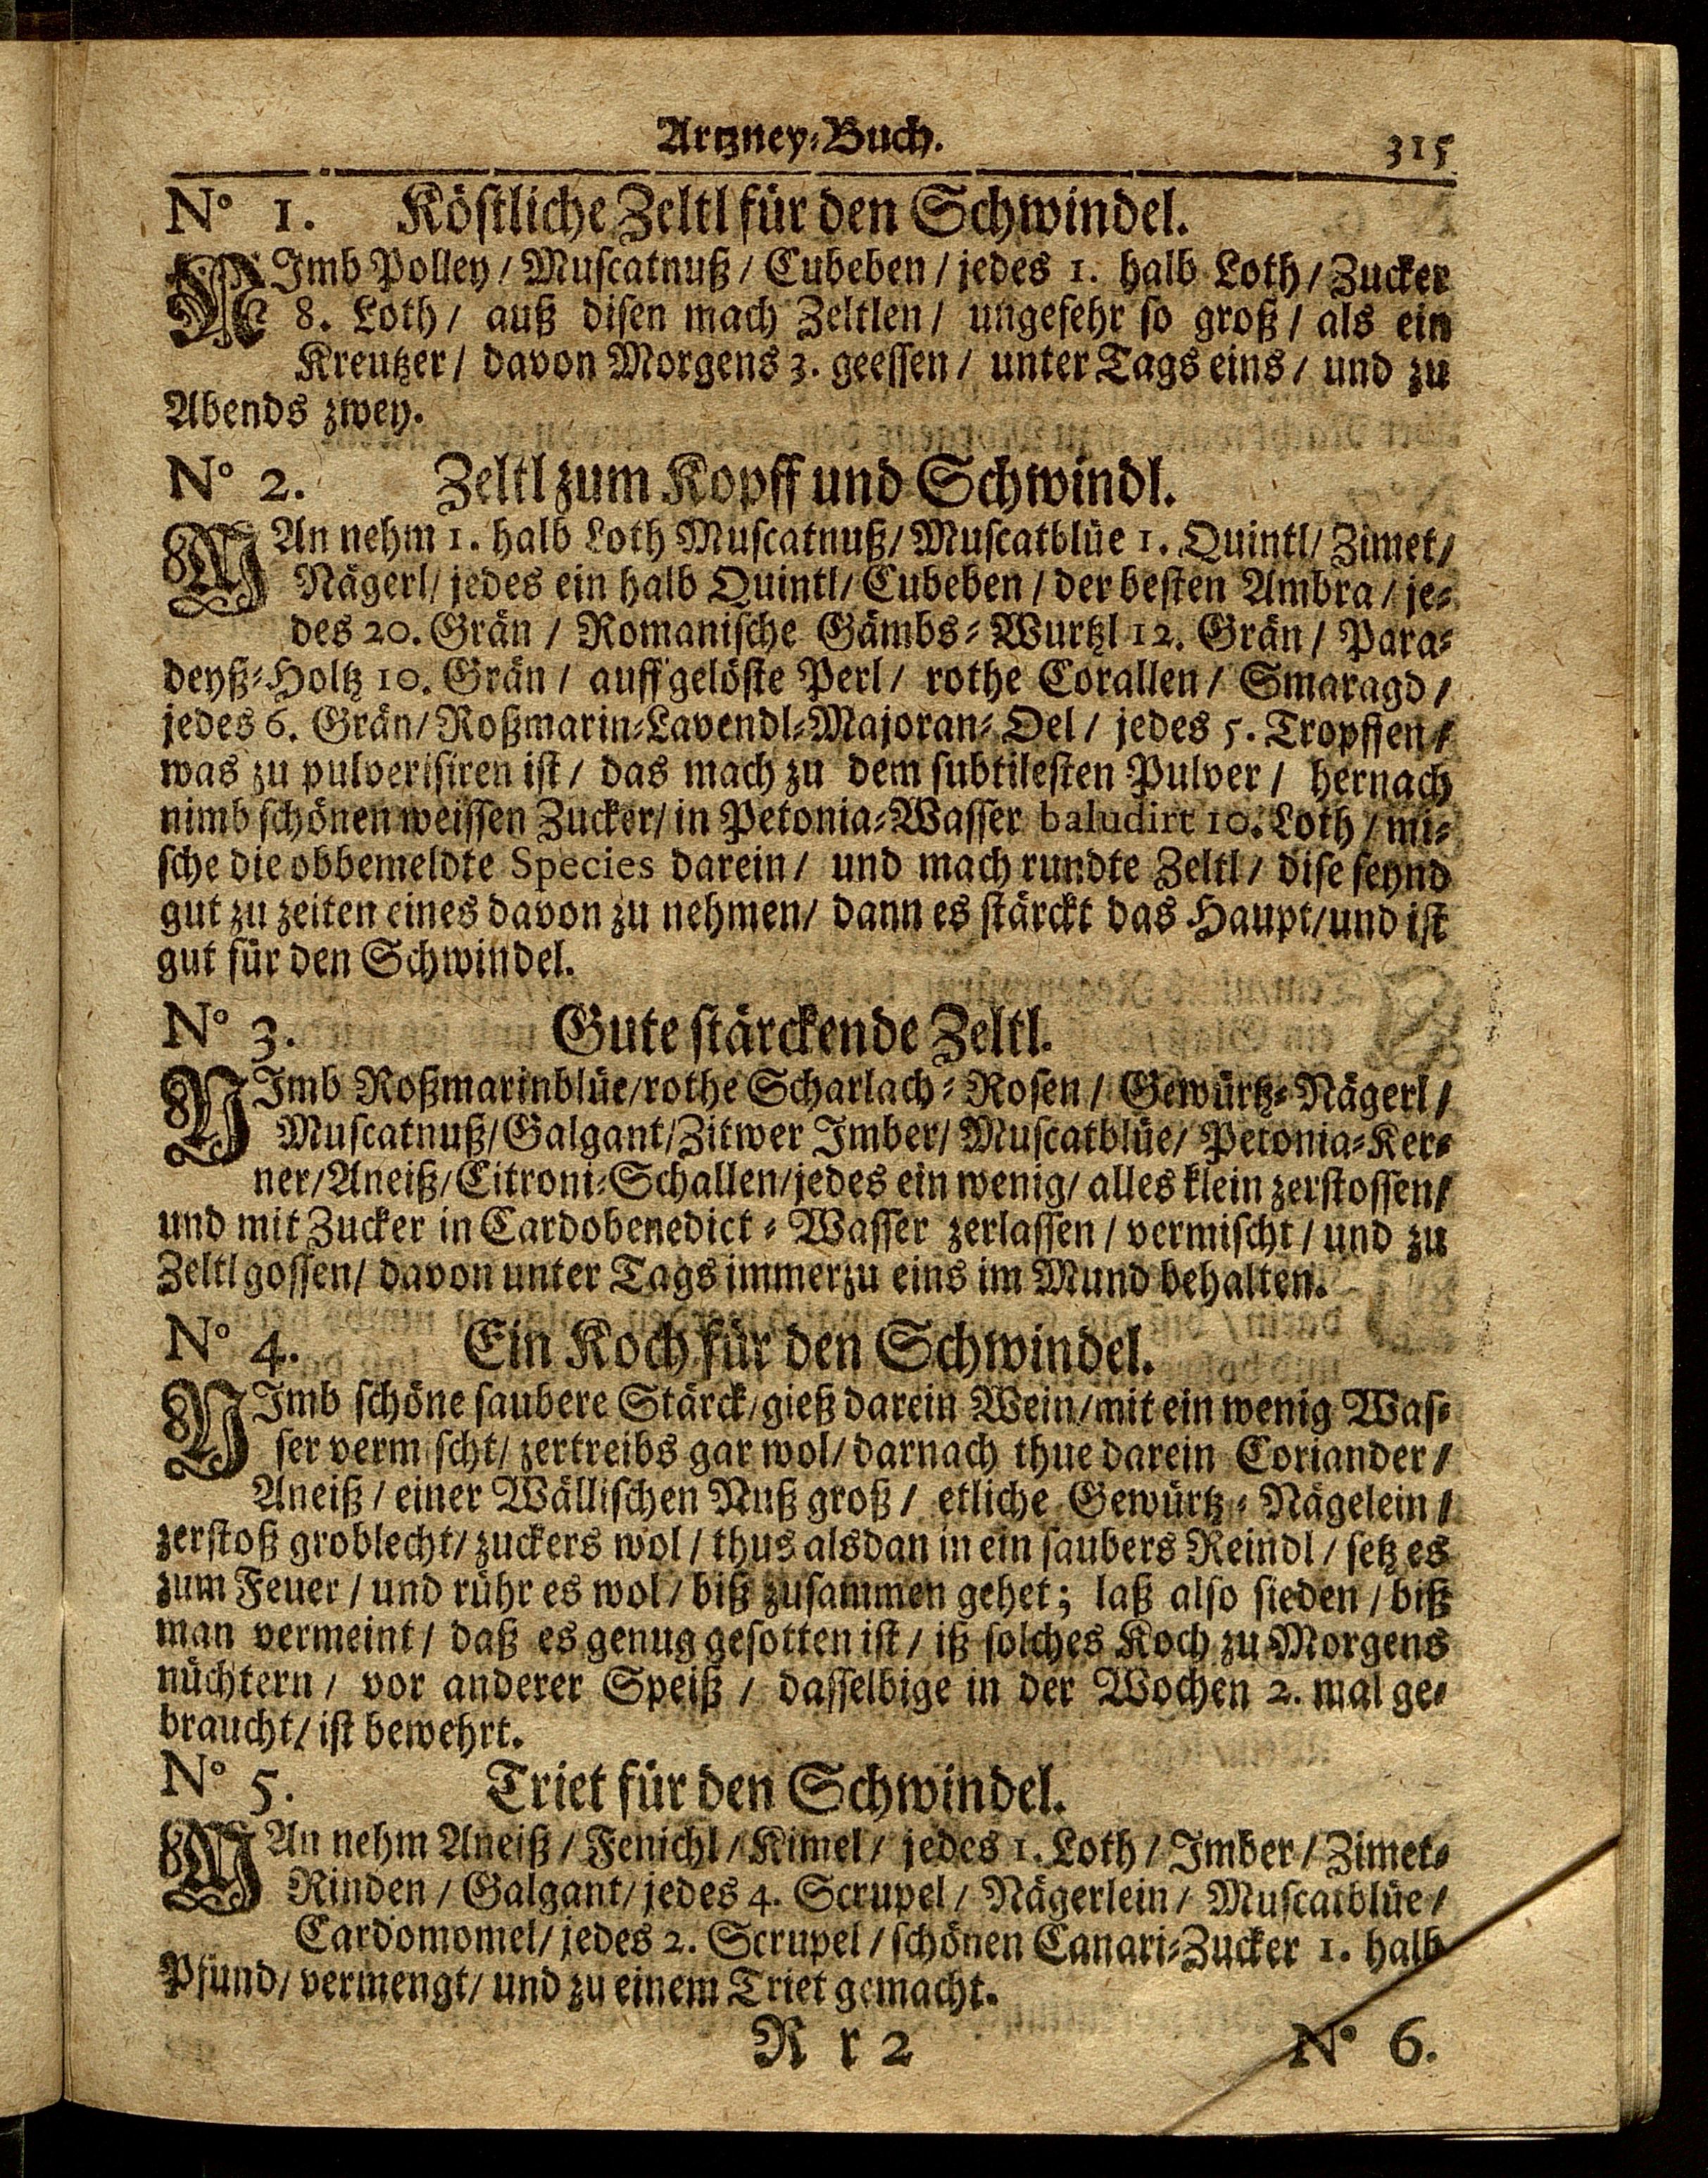 Artzney-Buch. 315
N° 1. Köstliche Zeltl für den Schwindel.
NImb Polley / Muscatnuß / Cubeben / jedes 1. halb Loth / Zucker
8. Loth / auß disen mach Zeltlen / ungefehr so groß / als ein
Kreutzer / davon Morgens 3. geessen / unter Tags eins / und zu
Abends zwey.
N° 2. Zeltl zum Kopff und Schwindl.
MAn nehm 1. halb Loth Muscatnuß / Muscatblüe 1. Quintl / Zimet /
Nägerl / jedes ein halb Quintl / Cubeben / der besten Ambra / je-
des 20. Grän / Romanische Gämbs-Wurtzl 12. Grän / Para-
deyß-Holtz 10. Grän / auffgelöste Perl / rothe Corallen / Smaragd /
jedes 6. Grän / Roßmarin-Lavendl-Majoran-Oel / jedes 5. Tropffen /
was zu pulverisiren ist / das mach zu dem subtilesten Pulver / hernach
nimb schönen weissen Zucker / in Petonia-Wasser baludirt 10. Loth / mi-
sche die obbemeldte Species darein / und mach rundte Zeltl / dise seynd
gut zu zeiten eines davon zu nehmen / dann es stärckt das Haupt / und ist
gut für den Schwindel.
N° 3. Gute stärckende Zeltl.
NImb Roßmarinblüe / rothe Scharlach-Rosen / Gewürtz-Nägerl /
Muscatnuß / Galgant / Zitwer Imber / Muscatblüe / Petonia-Ker-
ner / Aneiß / Citroni-Schallen / jedes ein wenig / alles klein zerstossen /
und mit Zucker in Cardobenedict-Wasser zerlassen / vermischt / und zu
Zeltl gossen / davon unter Tags immerzu eins im Mund behalten.
N° 4. Ein Koch für den Schwindel.
NImb schöne saubere Stärck / gieß darein Wein / mit ein wenig Was-
ser vermischt / zertreibs gar wol / darnach thue darein Coriander /
Aneiß / einer Wällischen Nuß groß / etliche Gewürtz-Nägelein /
zerstoß groblecht / zuckers wol / thus alsdan in ein saubers Reindl / setz es
zum Feuer / und rühr es wol / biß zusammen gehet; laß also sieden / biß
man vermeint / daß es genug gesotten ist / iß solches Koch zu Morgens
nüchtern / vor anderer Speiß / dasselbige in der Wochen 2. mal ge-
braucht / ist bewehrt.
N° 5. Triet für den Schwindel.
MAn nehm Aneiß / Fenichl / Kimel / jedes 1. Loth / Imber / Zimet-
Rinden / Galgant / jedes 4. Scrupel / Nägerlein / Muscatblüe /
Cardomomel / jedes 2. Scrupel / schönen Canari-Zucker 1. halb
Pfund / vermengt / und zu einem Triet gemacht.
R r 2 N° 6.